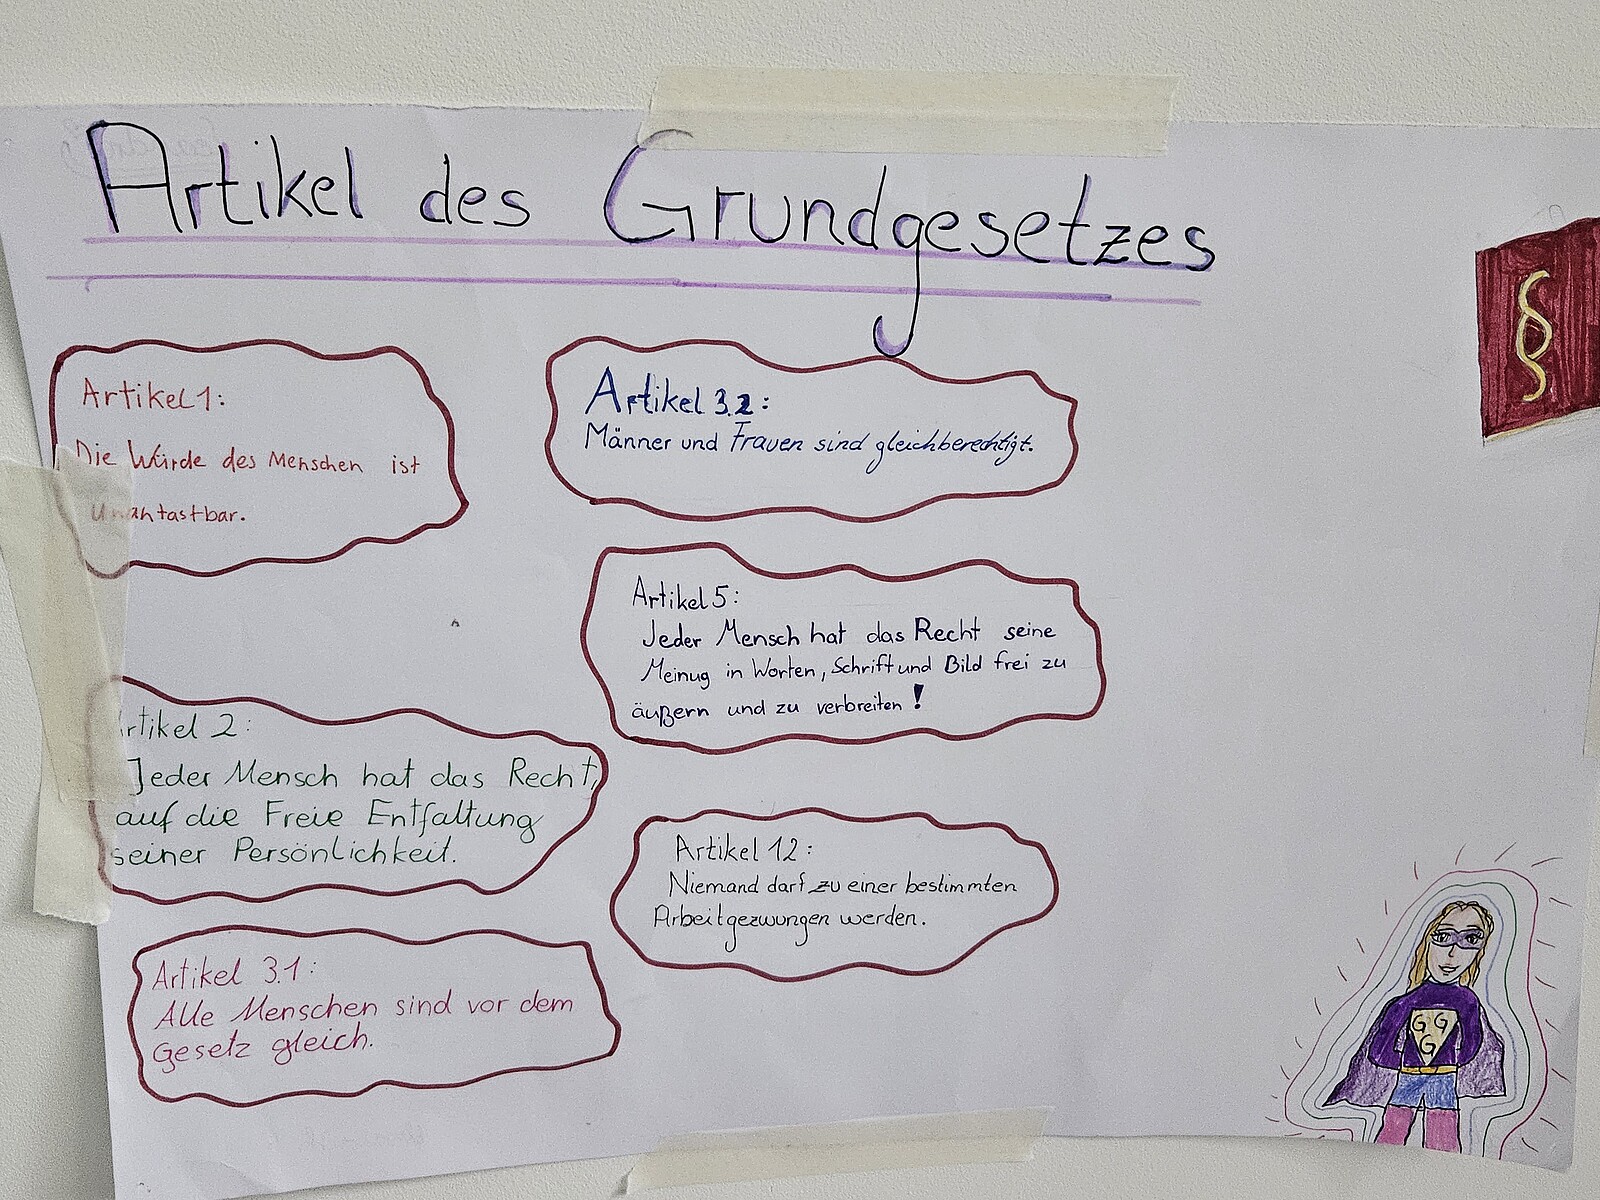 Artikel des Grundgesetzes
§
Artikel 1:
Die Würde des Menschen ist
unantastbar.
Artikel 2:
Jeder Mensch hat das Recht,
auf die Freie Entfaltung
seiner Persönlichkeit.
Artikel 3.1:
Alle Menschen sind vor dem
Gesetz gleich.
Artikel 3.2:
Männer und Frauen sind gleichberechtigt.
Artikel 5:
Jeder Mensch hat das Recht seine
Meinug in Worten, Schrift und Bild frei zu
äußern und zu verbreiten!
Artikel 12:
Niemand darf zu einer bestimmten
Arbeit gezwungen werden.
G G
G